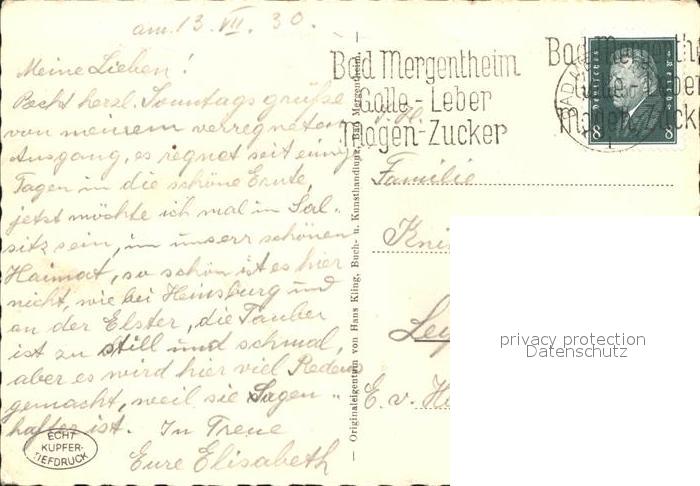 am 13. VII. 30.
Meine Lieben!
Recht herzl. Sonntagsgrüße
von meinem verregneten
Ausgang, es regnet seit einig
Tagen in die schöne Ernte,
jetzt möchte ich mal in Sal-
sitz sein, in unserr schönen
Haimat, so schön ist es hier
nicht, wie bei Heinsburg und
an der Elster, die Tauber
ist zu still und schmal,
aber es wird hier viel Redens
gemacht, weil sie Sagen-
hafter ist. In Treue
Eure Elisabeth
ECHT
KUPFER-
TIEFDRUCK
Originaleigentum von Hans Kling, Buch- u. Kunsthandlung, Bad Mergentheim.
Bad Mergentheim
Galle-Leber
Magen-Zucker
Bad Mergenth
Galle-Leber
Magen-Zuck
BAD
Deutsches Reich
8 8
Familie
Kni
Lei
E. v. H
privacy protection
Datenschutz